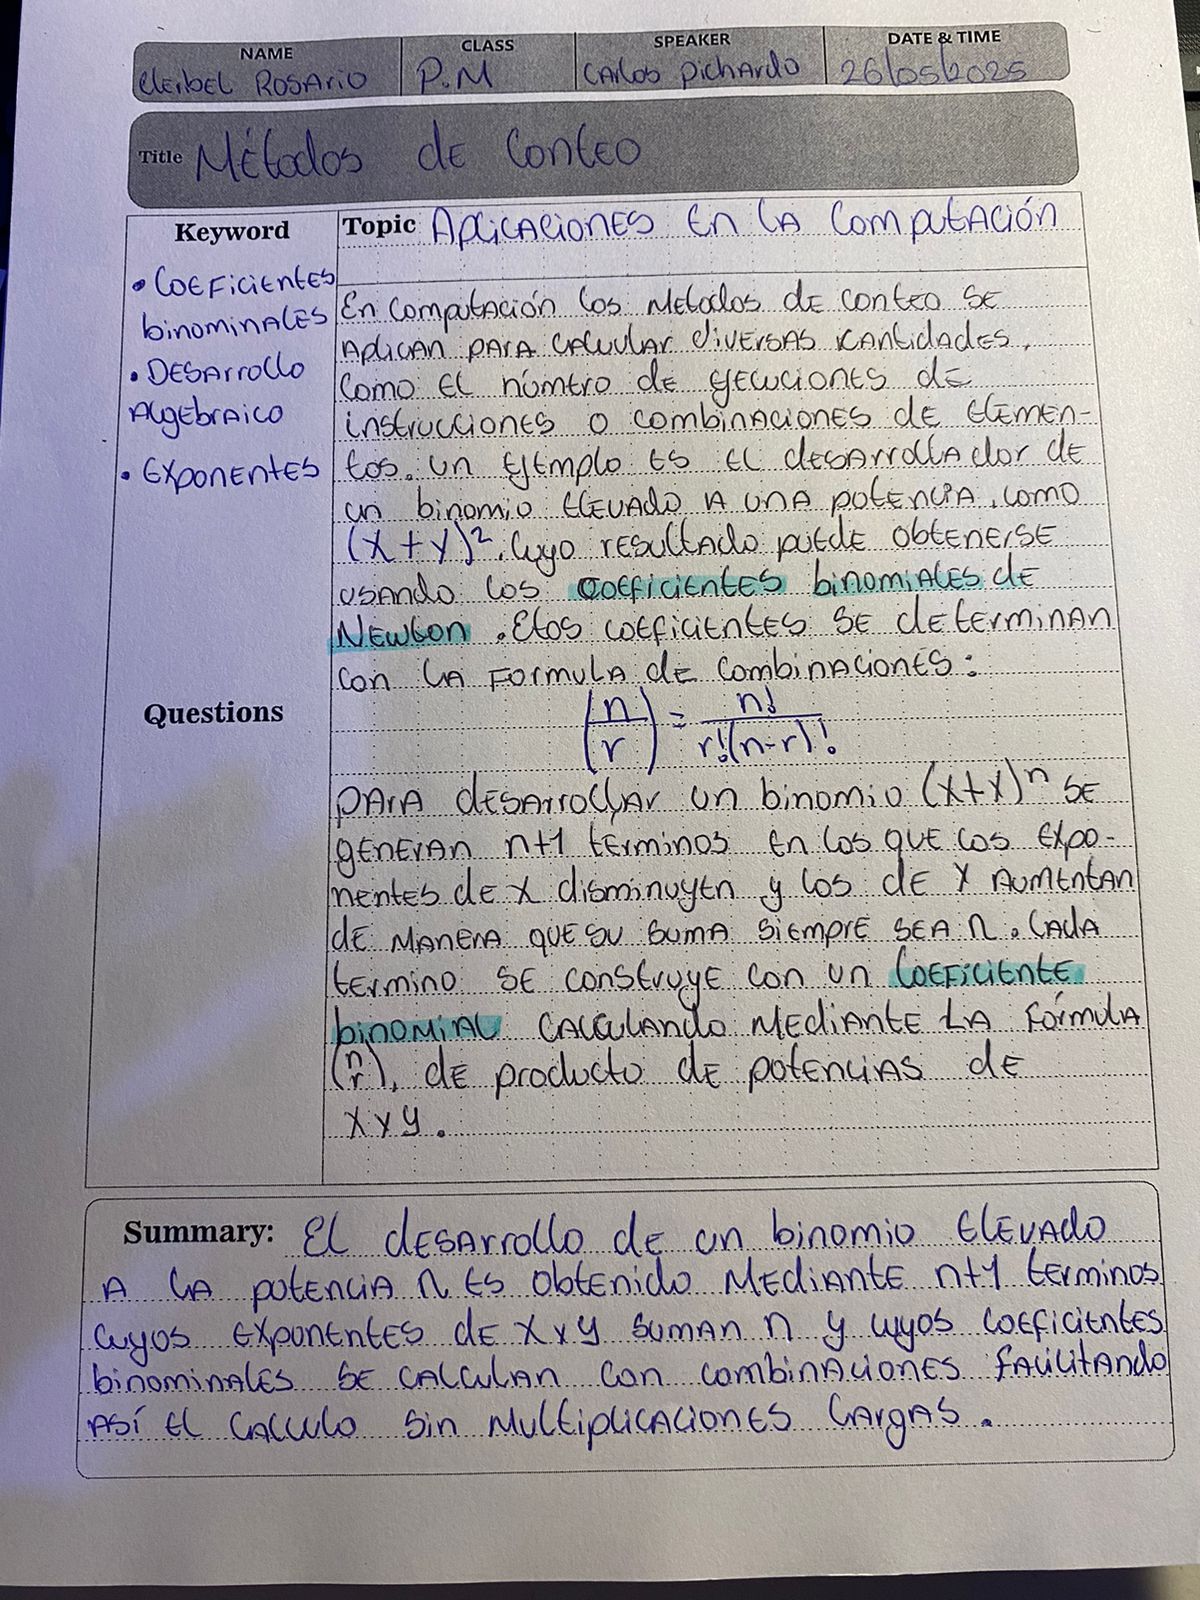 NAME CLASS SPEAKER DATE & TIME
Cleibel Rosario P.M Carlos Pichardo 26/05/2025
Title Métodos de Conteo
Keyword
• Coeficientes
binominales
• Desarrollo
Algebraico
• Exponentes
Questions
Topic Aplicaciones en la Computación
En Computación los Metodos de conteo se
aplican para calcular diversas cantidades,
Como el número de ejecuciones de
instrucciones o combinaciones de elemen-
tos. un ejemplo es el desarrollador de
un binomio elevado a una potencia, como
(x + y)², Cuyo resultado puede obtenerse
usando los coeficientes binomiales de
Newton. Etos coeficientes se determinan
con la formula de combinaciones:
(n/r) = n!/r!(n-r)!
para desarrollar un binomio (x+x)ⁿ se
generan n+1 terminos en los que los expo-
nentes de x disminuyen y los de Y aumentan
de manera que su suma siempre sea n. Cada
termino se construye con un Coeficiente
binomial calculando mediante la fórmula
(n r), de producto de potencias de
x y y.
Summary: El desarrollo de un binomio elevado
a la potencia n es obtenido mediante n+1 terminos
cuyos exponentes de x y y suman n y cuyos coeficientes
binominales se calculan con combinaciones facilitando
así el calculo sin multiplicaciones largas.